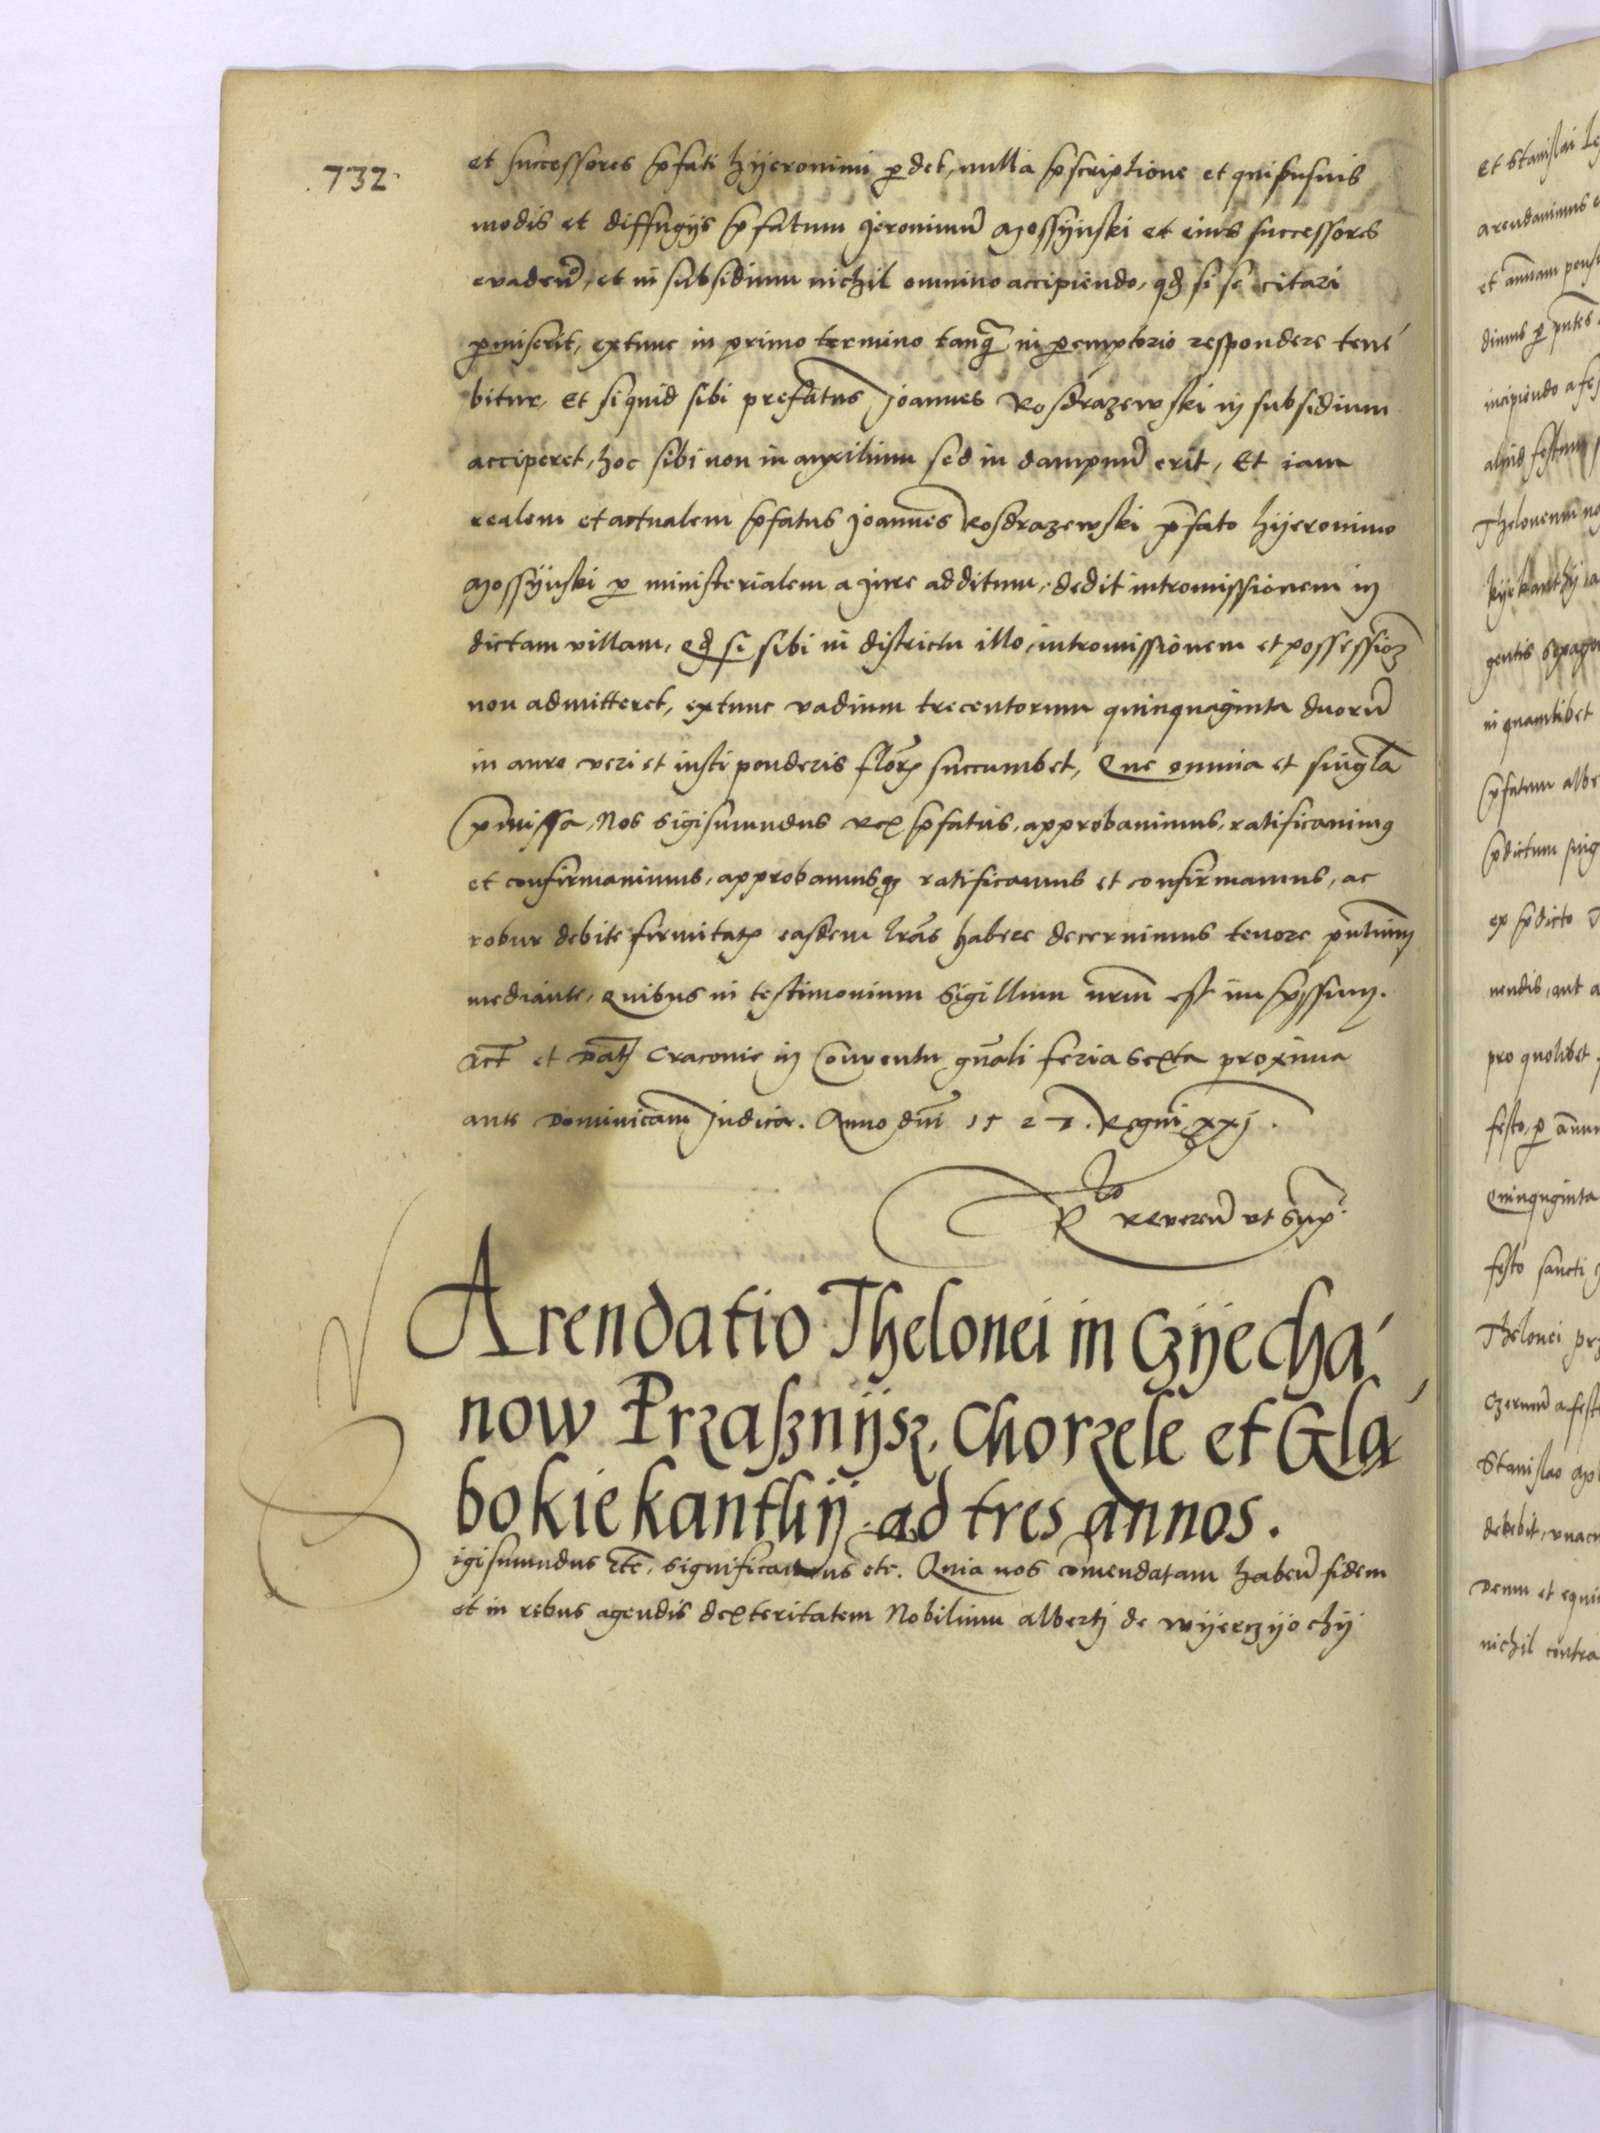 732.
et successores p̄fati Hyeronimi p̱det, nulla p̄scriptione et quibusuis
modis et diffugijs p̄fatum Jeronimū Mossyński et eius successores
evadeñ, et in subsidium nichil omnino accipiendo, qđ si se citari
p̱miserit, extunc in primo termino tanq̃ in p̱emptorio respondere tene
bitur. Et si quid sibi prefatus Joannes Rosdrazewski in subsidium
acciperet, hoc sibi non in auxilium sed in dampnū erit, Et iam
realem et actualem p̄fatus Joannes Rosdrazewski p̄fato Hyeronimo
Mossyński p̱ ministerialem a jure additum, dedit intromissionem in
dictam villam, qđ si sibi in districtu illo, intromissionem et possessioꝫ
non admitteret, extunc vadium trecentorum quinquaginta duorū
in auro veri et iusti ponderis floꝝ succumbet, Que omnia et singła
p̄missa, Nos Sigismundus Rex p̄fatus, approbauimus, ratificauimꝰ
et confirmauimus, approbamusqꝫ ratificamus et confirmamus, ac
robur debite firmitatꝭ easdem lr̃as habere decernimus tenore p̃ntium
mediante, Quibus in testimonium Sigillum nr̃m est imp̄ssum.
Act̃ et Dat̃ Cracovie in Conventu gn̄ali feria sexta proxima
ante Dominicam Judica. Anno dn̄i 1527. Regni xxj.
Rͭᵒ Reveren̄ ut Sup̱ᵃ
Arendatio Thelonei in Czyecha
now Przasznysz, Chorzele et Gla
bokie kanthy ad tres annos.
Sigismundus etc̃, significamus etc. Quia nos com̃endatam haben̄ fidem
et in rebus agendis dexteritatem Nobilium Alberti de Wyerczyochy
Et Stanislai
arendauimus
et annuam
dimus p̱ p̃ntes
incipiendo a
aliud festum
gentis sexagin
in quamlibet
p̄fatum
p̄dictum
ex p̄dicto
nendis, aut
pro quolibet
festo, p̱
Quinquaginta
festo sancti
Thelonei
a festo
Stanislao
debebit, vnac
Deum et
nichil contra